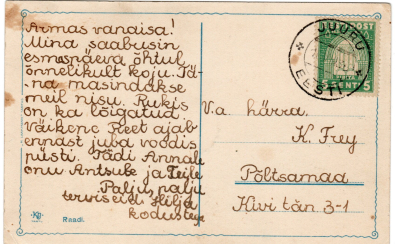 Armas vanaisa!
Mina saabusin
esmespäeva õhtul
õnnelikult koju. Tä-
na masindakse
meil nisu. Rukis
on ka lõigatud.
Väikene Reet ajab
ennast juba voodis
püsti. Tädi Annale
onu Antsule ja Teile
Palju, palju
terviseid Hilja
kodustega
Raadi.
JUURU
EESTI
POST
5 SENTI 5
V.a. härra.
K. Frey
Põltsamaa
Kivi tän 3-1